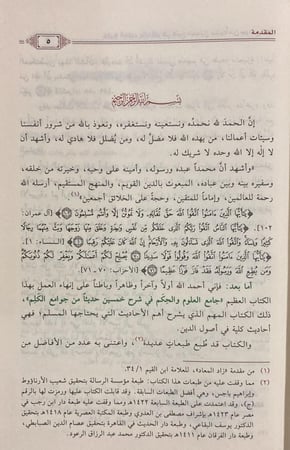 المقدمة
٥
بسم الله الرحمن الرحيم
إنَّ الحمدَ لله نحمدُه ونستعينه ونستغفره، ونعوذ بالله من شرور أنفسنا
وسيئات أعمالنا، من يهده الله فلا مضلَّ له، ومن يُضلل فلا هادي له، وأشهد أن
لا إله إلا الله وحده لا شريك له.
«وأشهد أنَّ محمداً عبده ورسوله، وأمينه على وحيه، وخيرته من خلقه،
وسفيره بينه وبين عباده، المبعوث بالدين القويم، والمنهج المستقيم، أرسله الله
رحمة للعالمين، وإماماً للمتقين، وحجةً على الخلائق أجمعين»(١).
﴿يَا أَيُّهَا الَّذِينَ آمَنُوا اتَّقُوا اللَّهَ حَقَّ تُقَاتِهِ وَلَا تَمُوتُنَّ إِلَّا وَأَنْتُمْ مُسْلِمُونَ﴾ [آل عمران:
١٠٢]. ﴿يَا أَيُّهَا النَّاسُ اتَّقُوا رَبَّكُمُ الَّذِي خَلَقَكُمْ مِنْ نَفْسٍ وَاحِدَةٍ وَخَلَقَ مِنْهَا زَوْجَهَا وَبَثَّ مِنْهُمَا رِجَالًا
كَثِيرًا وَنِسَاءً وَاتَّقُوا اللَّهَ الَّذِي تَسَاءَلُونَ بِهِ وَالْأَرْحَامَ إِنَّ اللَّهَ كَانَ عَلَيْكُمْ رَقِيبًا﴾ [النساء: ١].
﴿يَا أَيُّهَا الَّذِينَ آمَنُوا اتَّقُوا اللَّهَ وَقُولُوا قَوْلًا سَدِيدًا ۝ يُصْلِحْ لَكُمْ أَعْمَالَكُمْ وَيَغْفِرْ لَكُمْ ذُنُوبَكُمْ
وَمَنْ يُطِعِ اللَّهَ وَرَسُولَهُ فَقَدْ فَازَ فَوْزًا عَظِيمًا﴾ [الأحزاب: ٧٠ ـ ٧١].
أما بعد: فإني أحمد الله أولاً وآخراً وظاهراً وباطناً على إنهاء العمل بهذا
الكتاب العظيم «جامع العلوم والحكم في شرح خمسين حديثاً من جوامع الكلم»،
ذلك الكتاب المهم الذي يشرح أهم الأحاديث التي يحتاجها المسلم؛ فهي
أحاديث كلية في أصول الدين.
والكتاب قد طُبع طبعاتٍ عديدة(٢)، واعتنى به عدد من الأفاضل من
(١) من مقدمة «زاد المعاد»، للعلامة ابن القيم ٣٤/١.
(٢) مما وقفت عليه من طبعات هذا الكتاب: طبعة مؤسسة الرسالة بتحقيق شعيب الأرناؤوط
وإبراهيم باجس، وهي أفضل الطبعات السابقة. وقد قابلت الكتاب عليها ورمزت لها بالرقم
(ج)، وقد اعتمدت على الطبعة السابعة ١٤٢٢هـ ومما وقفت عليه: طبعة دار ابن رجب في
مصر عام ١٤٢٣هـ بإشراف مصطفى بن العدوي وطبعة المكتبة العصرية عام ١٤١٨هـ بتحقيق
الدكتور يوسف البقاعي، وطبعة دار الحديث في القاهرة بتحقيق عصام الدين الصبابطي،
وطبعة دار الفرقان عام ١٤١١هـ بتحقيق الدكتور محمد عبد الرزاق الرعود.